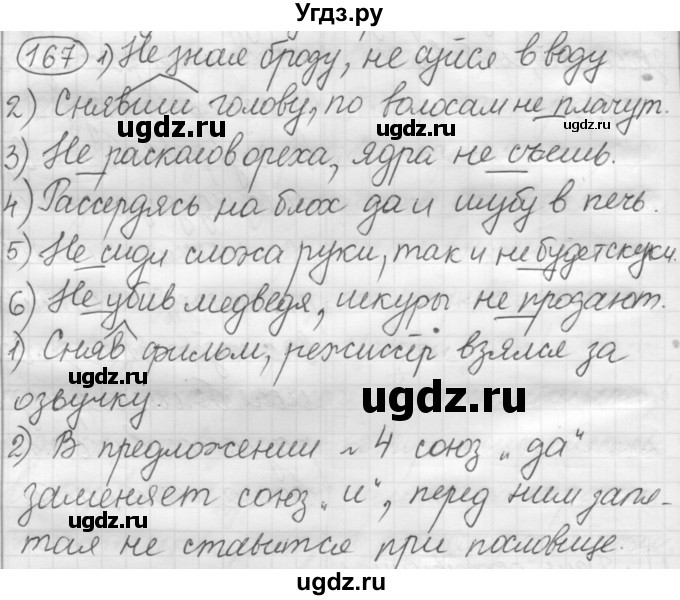 Угдз.ру
167 1) Не зная броду, не суйся в воду
2) Снявши голову, по волосам не плачут.
ugdz.ru ugdz.ru
3) Не расколов ореха, ядра не съешь.
ugdz.ru
4) Рассердясь на блох да и шубу в печь.
5) Не сиди сложа руки, так и не будет скуки.
ugdz.ru ugdz.ru
6) Не убив медведя, шкуры не продают.
1) Сняв фильм, режиссёр взялся за
ugdz.ru ugdz.ru
озвучку.
2) В предложении ~ 4 союз „да“
ugdz.ru ugdz.ru
заменяет союз „и“, перед ним запя-
тая не ставится при пословице.
ugdz.ru